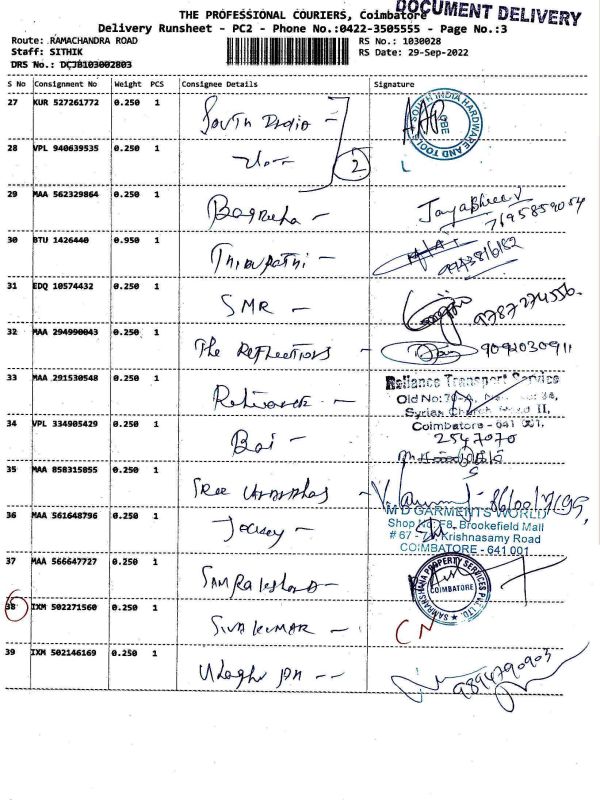 DOCUMENT DELIVERY
THE PROFESSIONAL COURIERS, Coimbatore
Delivery Runsheet - PC2 - Phone No.:0422-3505555 - Page No.:3
Route: RAMACHANDRA ROAD RS No.: 1030028
Staff: SITHIK RS Date: 29-Sep-2022
DRS No.: DCJB103002803
S No Consignment No Weight PCS Consignee Details Signature
27 KUR 527261772 0.250 1 South India - SOUTH INDIA HARDWARE AND TOOLS CBE
28 VPL 940639535 0.250 1 2
29 MAA 562329864 0.250 1 Jayabhree V
7695859054
30 BTU 1426440 0.950 1 Thirupathi - 9943816182
31 EDQ 10574432 0.250 1 SMR - 9787274556
32 MAA 294990043 0.250 1 The Reflections - 9092030911
33 MAA 291530548 0.250 1 Reliance Transport Service
Syrian Church Road II,
Coimbatore - 641 001.
34 VPL 334905429 0.250 1 Bai - 2547070
35 MAA 858315055 0.250 1 Sree
36 MAA 561648796 0.250 1 M D GARMENTS WORLD
Shop No. F8, Brookefield Mall
Krishnasamy Road
COIMBATORE - 641 001
37 MAA 566647727 0.250 1 SAMRAKSHANA PROPERTY SERVICES PVT. LTD. COIMBATORE
38 IXM 502271560 0.250 1 Sivakumar - CN
39 IXM 502146169 0.250 1 9894790903